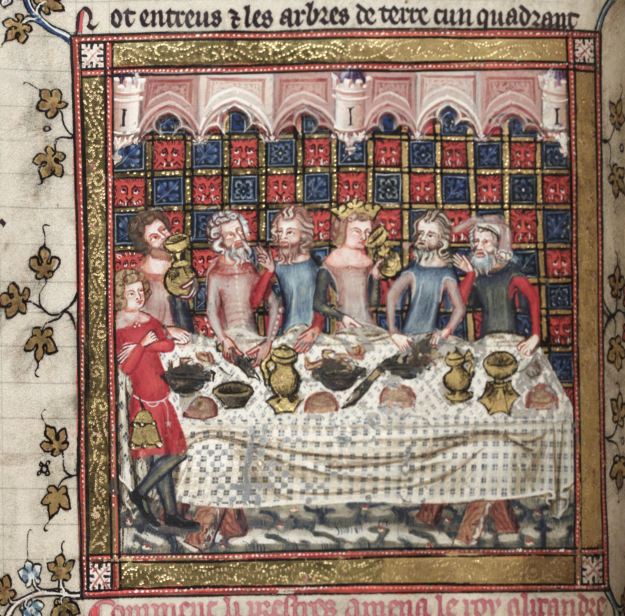 Not entreus ⁊ les arbres de terre cun quadrant
Comment li prestres amena le roy alixandre